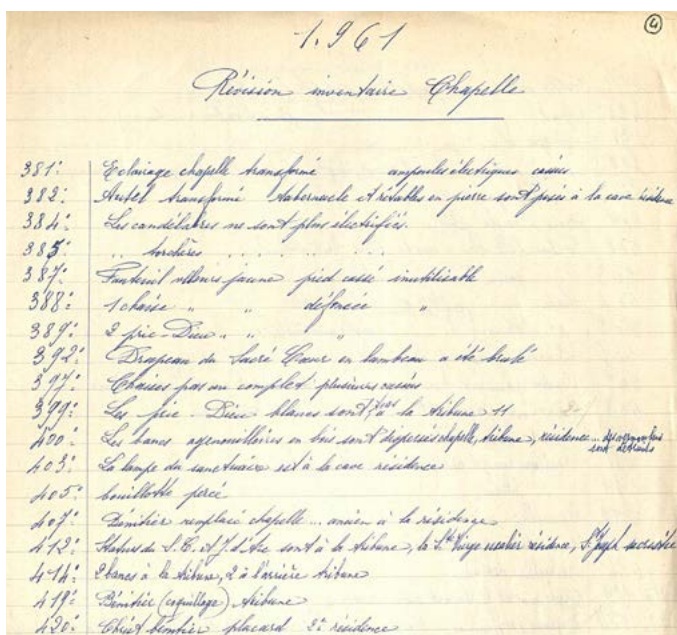 ④
1.961
Révision inventaire Chapelle
381: Eclairage chapelle transformé ampoules électriques cassées
382: Autel transformé tabernacle et rétables en pierre sont posés à la cave résidence
384: Les candélabres ne sont plus électrifiés.
385: „ torchères . . . . . . . .
387: Fauteuil velours jaune pied cassé inutilisable
388: 1 chaise „ „ défoncée „
389: 2 prie-Dieu „ „ „
392: Drapeau du Sacré Coeur en lambeau a été brulé
397: Chaises pas au complet plusieurs cassées
399: Les prie-Dieu blancs sont tous à la tribune 11
400: Les bancs agenouilloires en bois sont dispersés chapelle, tribune, résidence ...
sont détruits
403: La lampe du sanctuaire est à la cave résidence
405: bouillotte percé
407: Bénitier remplacé chapelle ... ancien à la résidence
412: Statues du S.C. et J. d'Arc sont à la tribune, la Ste Vierge résidence, St Joseph sacristie
414: 2 bancs à la tribune, 2 à l'arrière tribune
419: Bénitier (coquillage) tribune
420: Christ bénitier placard 2e résidence